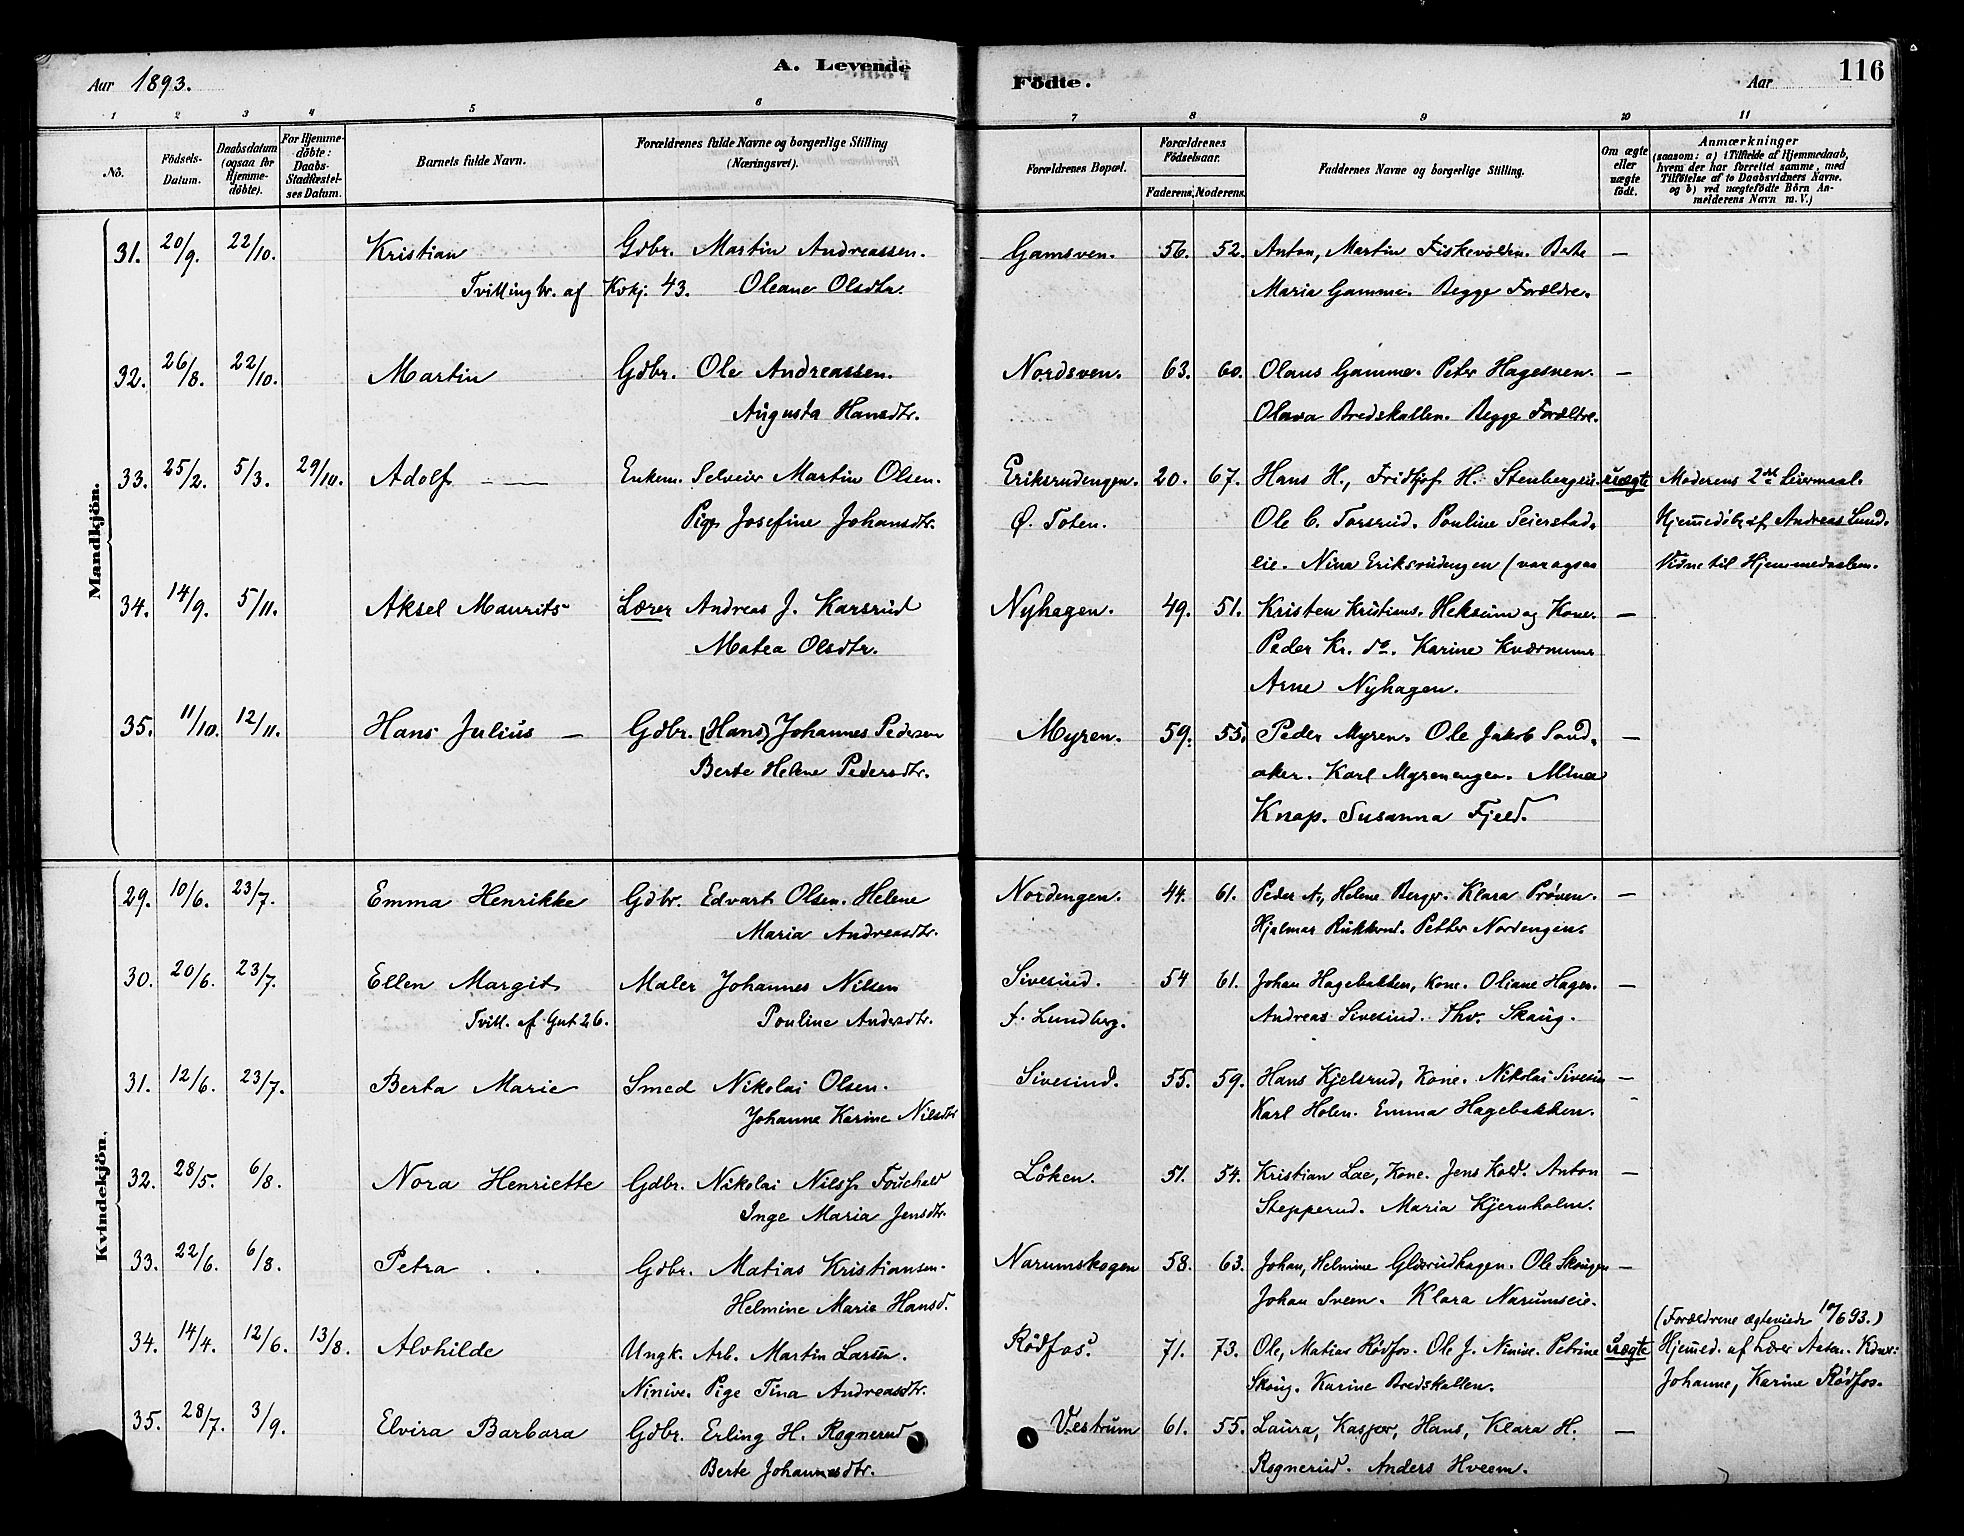 Aar 1893.
A. Levende
Födte.
Aar
116
1 2 3 4 5 6 7 8 9 10 11
No.
Födsels-Datum.
Daabsdatum (ogsaa for Hjemme-döbte).
For Hjemme-döbte: Daabs-Stadfæstelses Datum.
Barnets fulde Navn.
Forældrenes fulde Navne og borgerlige Stilling (Næringsvei).
Forældrenes Bopæl.
Forældrenes Födselsaar.
Faderens.
Moderens.
Faddernes Navne og borgerlige Stilling.
Om ægte eller uægte født.
Anmærkninger
(saasom: a) i Tilfælde af Hjemmedaab, hvem der har forrettet samme, med Tilföielse af to Daabsvidners Navne. og b) ved uægtefödte Börn Anmelderens Navn m. V.)
Mandkjön.
31. 20/9. 22/10. Kristian Gdbr. Martin Andreassen. Gamsven. 56. 52. Anton, Martin Fiskevolden. Beate —
Tvillingbr. af Kvkj. 43. Oleane Olsdtr. Maria Gamme. Begge Forældre.
32. 26/8. 22/10. Martin Gdbr. Ole Andreassen. Nordsven. 63. 60. Olaus Gamme. Peter Hagesven. —
Augusta Hansdtr. Olava Bredskallen. Begge Forældre.
33. 25/2. 5/3. 29/10. Adolf Enkem. Selveier Martin Olsen. Eriksrudengen. 20. 67. Hans H., Fridtjof H. Stenbergeie. uægte Moderens 2det Leiermaal.
Pige Josefine Johansdtr. Ø. Toten. Ole C. Torsrud. Pouline Seierstad- Hjemmedöbt af Andreas Lund.
eie. Nina Eriksrudengen (var ogsaa Vidne til Hjemmedaaben.
34. 14/9. 5/11. Aksel Maurits Lærer Andreas J. Karsrud Nyhagen. 49. 51. Kristen Kristians. Heksum og Kone. —
Matea Olsdtr. Peder Kr. do. Karine Kværnum
Arne Nyhagen.
35. 11/10. 12/11. Hans Julius — Gdbr. (Hans) Johannes Pedersen Myren. 59. 55. Peder Myren. Ole Jakob Sand- —
Berte Helene Pedersdtr. aker. Karl Myrenengen. Mina
Knap. Susanna Fjeld.
Kvindekjön.
29. 10/6. 23/7. Emma Henrikke Gdbr. Edvart Olsen. Helene Nordengen. 44. 61. Peder A., Helene Berger. Klara Pröven. —
Maria Andreasdtr. Hjalmar Rukkerud. Petter Nordengen.
30. 20/6. 23/7. Ellen Margit Maler Johannes Nilsen Sivesind. 54 61. Johan Hagebakken, Kone. Oliane Hagen. —
Tvill. af Gut 26. Pouline Andersdtr. f. Lundberg. Andreas Sivesind. Thv. Skaug.
31. 12/6. 23/7. Berta Marie Smed Nikolai Olsen. Sivesind. 55. 59. Hans Kjelsrud, Kone. Nikolai Sivesin —
Johanne Karine Nilsdtr Karl Holen. Emma Hagebakken.
32. 28/5. 6/8. Nora Henriette Gdbr. Nikolai Nilss. Fouchald Löken. 51. 54. Kristian Lae, Kone. Jens Kold. Anton —
Inge Maria Jensdtr. Stepperud. Maria Kjernholm.
33. 22/6. 6/8. Petra Gdbr. Matias Kristiansen. Narumskogen 58. 63. Johan, Helmine Glæsrudhagen. Ole Skougen —
Helmine Marie Hansd. Johan Sveen. Klara Narumseie.
(Forældrene ægteviede 10/6 93.)
34. 14/4. 12/6. 13/8. Alvhilde Ungk. Arb. Martin Larsen. Rödfos. 71. 73. Ole, Matias Rödfos. Ole J. Ninive. Petrine uægte Hjemmed. af Lærer Aasen. Vidner:
Ninive. Pige Tina Andreasdtr. Skoug. Karine Bredskallen. Johanne, Karine Rödfos.
35. 28/7. 3/9. Elvira Barbara Gdbr. Erling H. Rognerud Vestrum 61. 55. Laura, Kasper, Hans, Klara H. —
Berte Johannesdtr. Rognerud. Anders Hveem.